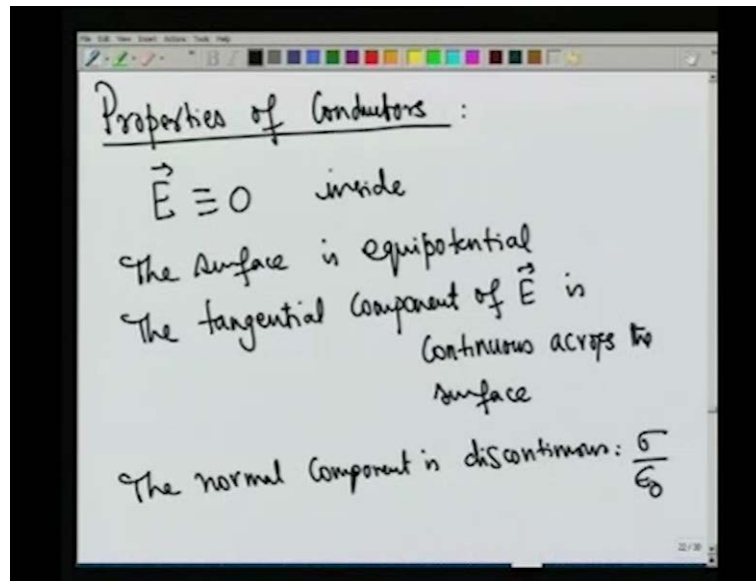 File Edit View Insert Actions Tools Help
Properties of Conductors :
E⃗ ≡ 0 inside
The surface is equipotential
The tangential component of E⃗ is
continuous across the
surface
The normal component is discontinuous: σ/ϵ₀
22/30